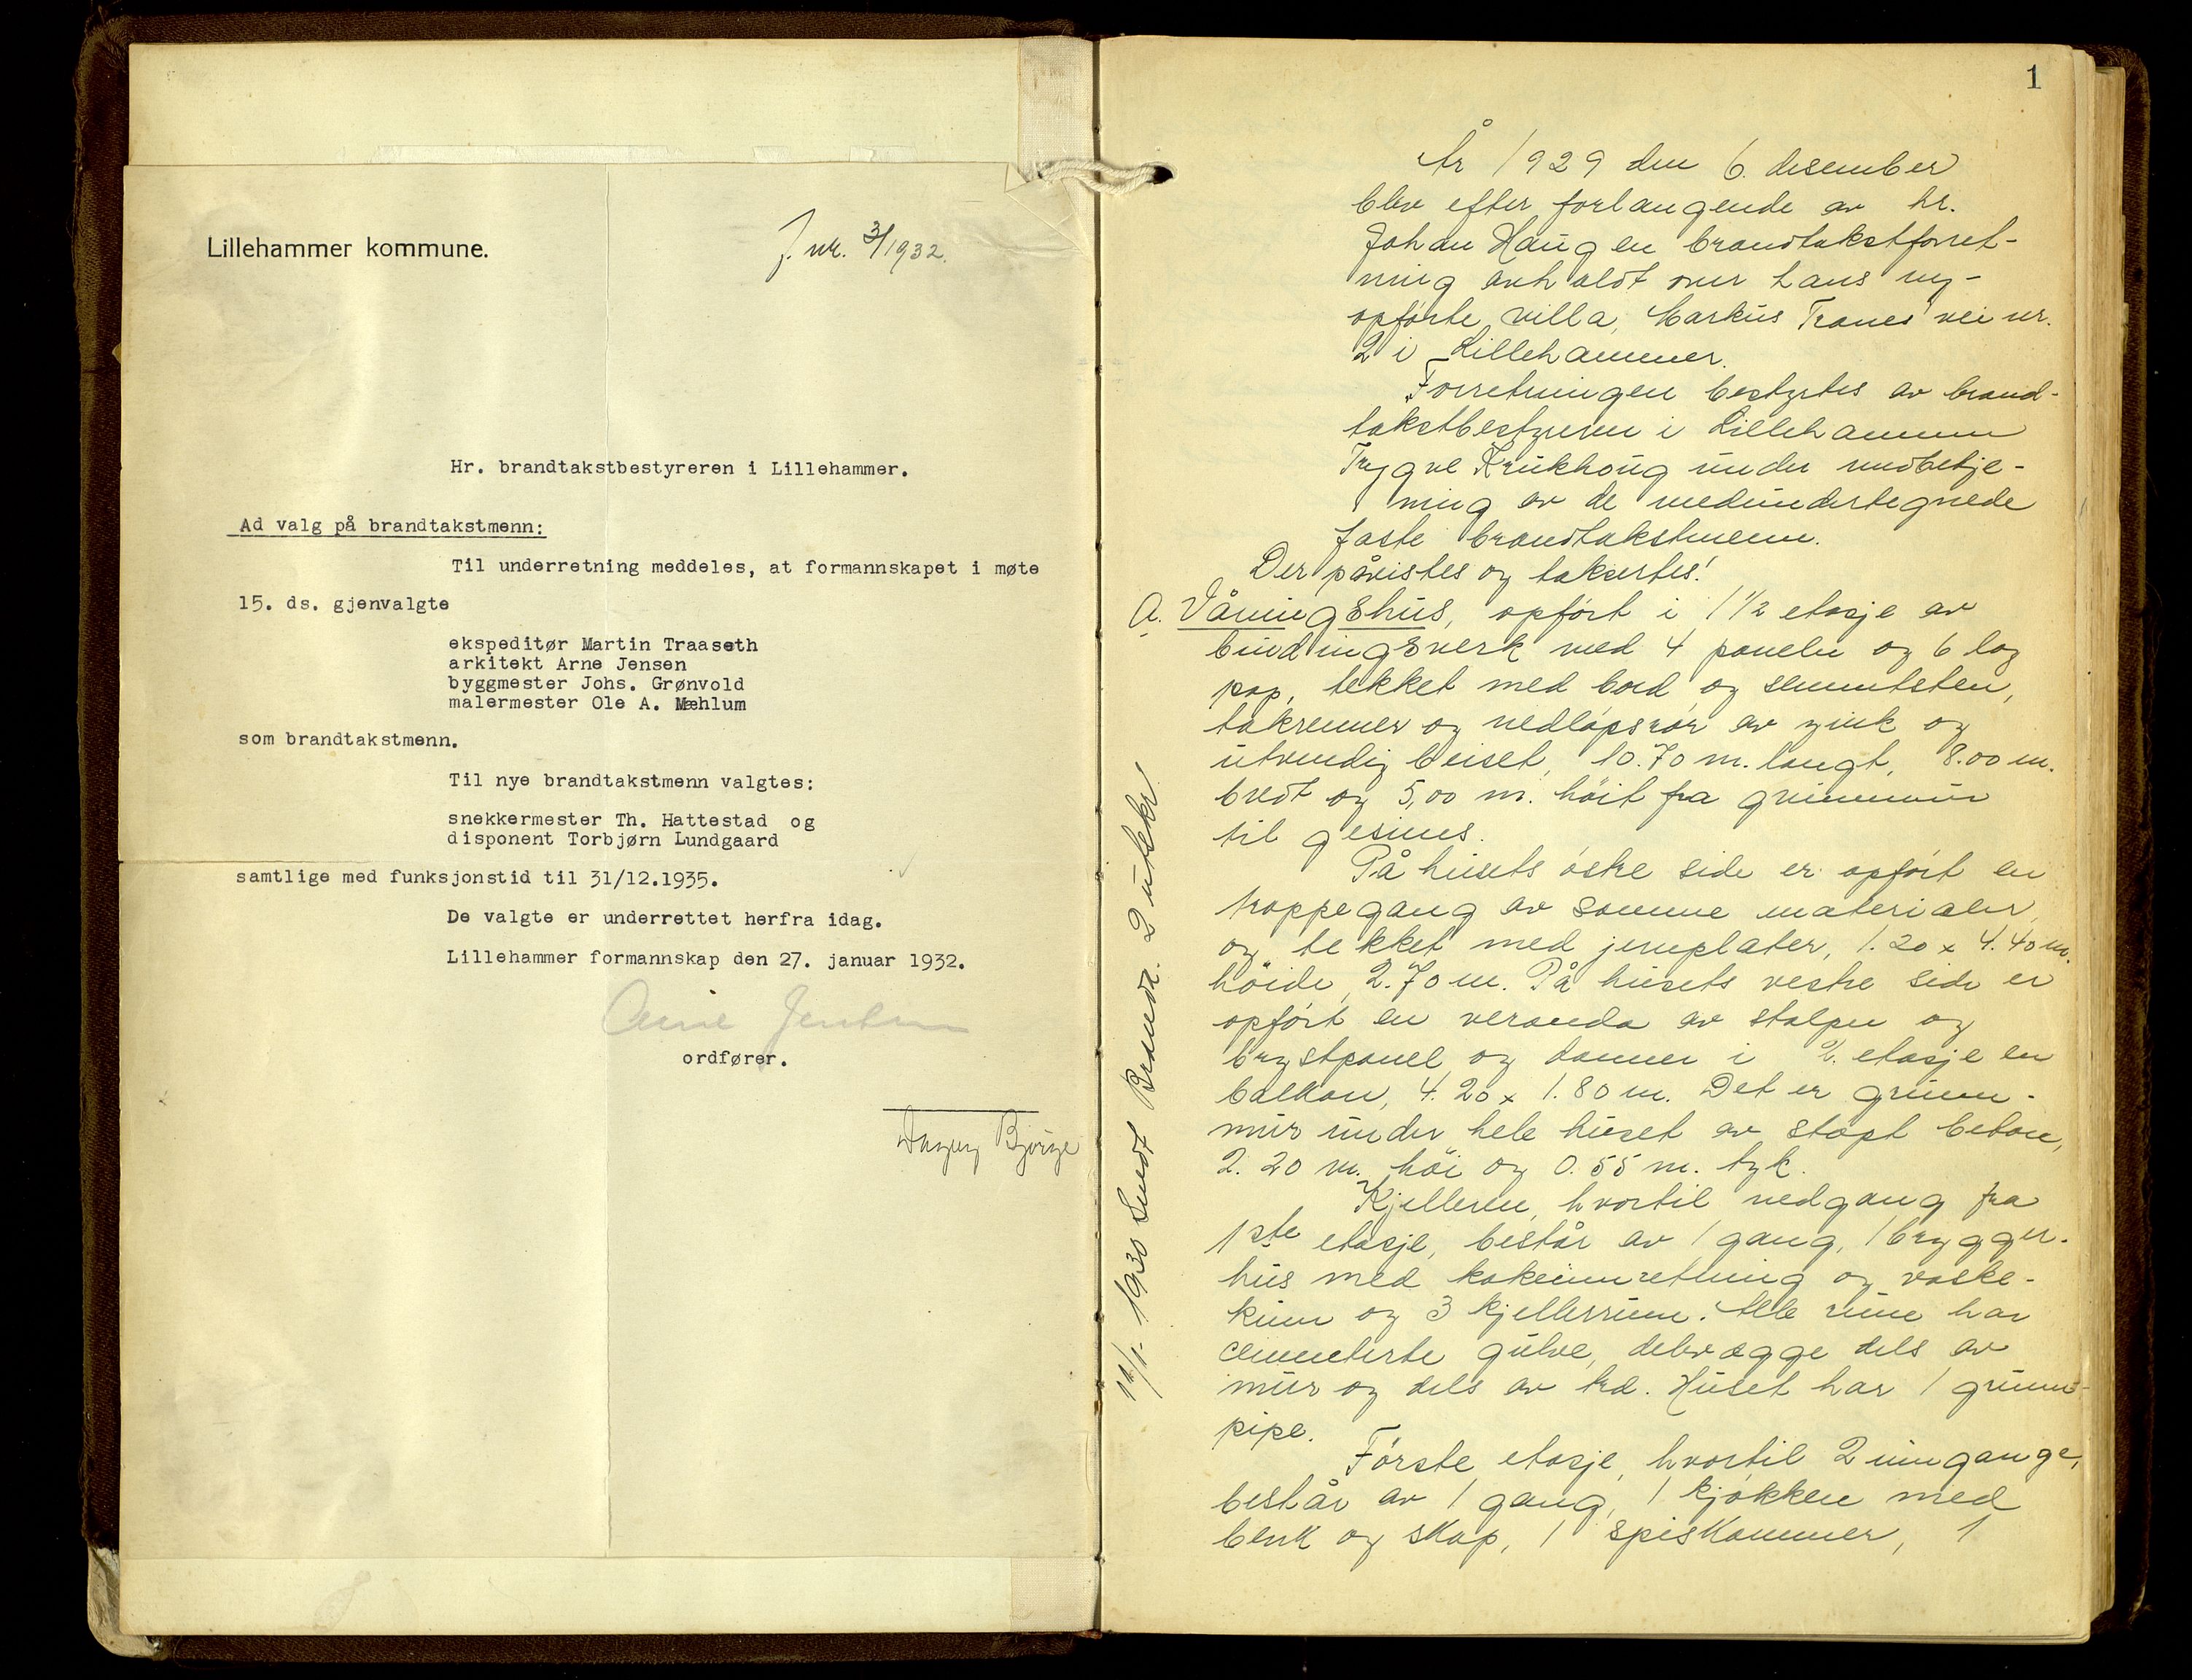 Lillehammer kommune.
J. nr. 3/1932.
Hr. brandtakstbestyreren i Lillehammer.
Ad valg på brandtakstmenn:
Til underretning meddeles, at formannskapet i møte
15. ds. gjenvalgte
ekspeditør Martin Traaseth
arkitekt Arne Jensen
byggmester Johs. Grønvold
malermester Ole A. Mæhlum
som brandtakstmenn.
Til nye brandtakstmenn valgtes:
snekkermester Th. Hattestad og
disponent Torbjørn Lundgaard
samtlige med funksjonstid til 31/12.1935.
De valgte er underrettet herfra idag.
Lillehammer formannskap den 27. januar 1932.
Arne Jensen
ordfører.
1
År 1929 den 6. desember
blev efter forlangende av hr.
Johan Haugen brandtakstforret-
ning avholdt over hans ny-
opførte villa, Markus Tranes vei nr.
2 i Lillehammer.
Forretningen bestyrtes av brand-
takstbestyreren i Lillehammer
Trygve Krukhoug under medbetje-
ning av de medundertegnede
faste brandtakstmenn.
Der påvistes og taksertes:
A. Våningshus, opført i 1 1/2 etasje av
bindingsverk med 4 paneler og 6 lag
pap, tekket med bord og sementsten,
takrenner og nedløpsrør av zink og
utvendig beiset, 10.70 m. langt, 8.00 m.
bredt og 5,00 m. høit fra grunnmur
til gesims.
På husets østre side er opført en
trappegang av samme materialer
og tekket med jernplater, 1.20 x 4.40 m.
høide 2.70 m. På husets vestre side er
opført en veranda av stolper og
brystpanel og danner i 2. etasje en
balkon, 4.20 x 1.80 m. Det er grunn-
mur under hele huset av støpt beton,
2.20 m. høi og 0.55 m. tyk.
Kjelleren, hvortil nedgang fra
1ste etasje, består av 1 gang, 1 brygger-
hus med kokeinnretning og vaske-
kum og 3 kjellerrum. Alle rum har
cementerte gulve, delevægge dels av
mur og dels av træ. Huset har 1 grunn-
pipe.
Første etasje, hvortil 2 innganger,
består av 1 gang, 1 kjøkken med
benk og skap, 1 spiskammer, 1
14/1 1930 Sendt Brandk. 2 utskr.